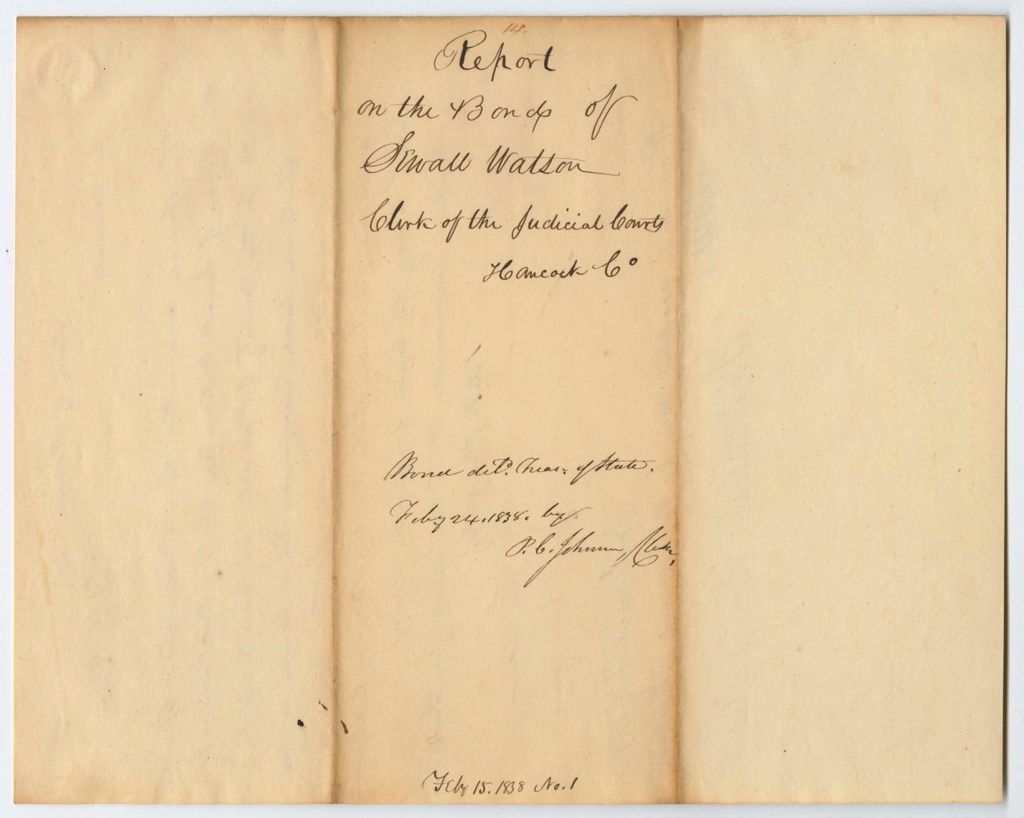 14.
Report
on the Bond of
Sewall Watson
Clerk of the Judicial Courts
Hancock Co
Bond deld. Treas. of State.
Feby 24. 1838. by
P. C. Johnson,
Feby 15. 1838 No. 1